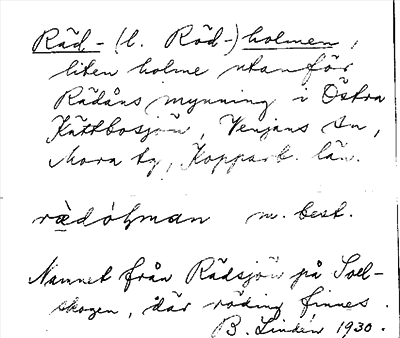 Räd- (l. Röd-) holmen,
liten holme utanför
Rädåns mynning i Östra
Kättbosjön, Venjans sn,
Mora tg, Kopparb. län.
rä̀dòḷman m. best.
Namnet från Rädsjön på Soll-
skogen, där röding finnes.
B. Lindén 1930.